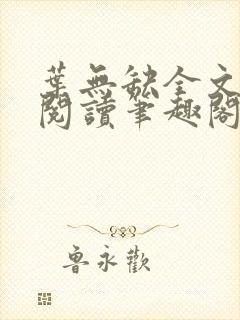 葉無缺全文
閱讀筆趣閣
魯永歡